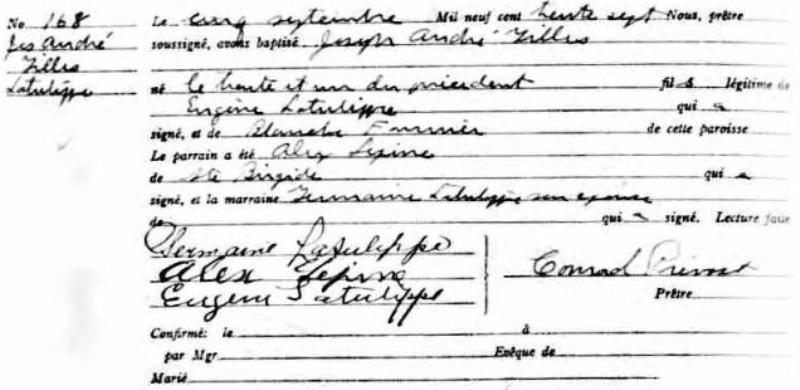 No. 168
Jos André
Gilles
Latulippe
Le cinq septembre Mil neuf cent trente sept Nous, prêtre
soussigné, avons baptisé Joseph André Gilles
né le trente et un du précédent fils légitime de
Eugène Latulippe qui a
signé, et de Blanche Fournier de cette paroisse
Le parrain a été Alex Lépine
de Ste Brigide qui a
signé, et la marraine Germaine Latulippe son épouse
de qui a signé. Lecture faite
Germaine Latulippe
Alex Lépine
Eugène Latulippe
Conrad Prévost
Prêtre
Confirmé: le à
par Mgr. Evêque de
Marié